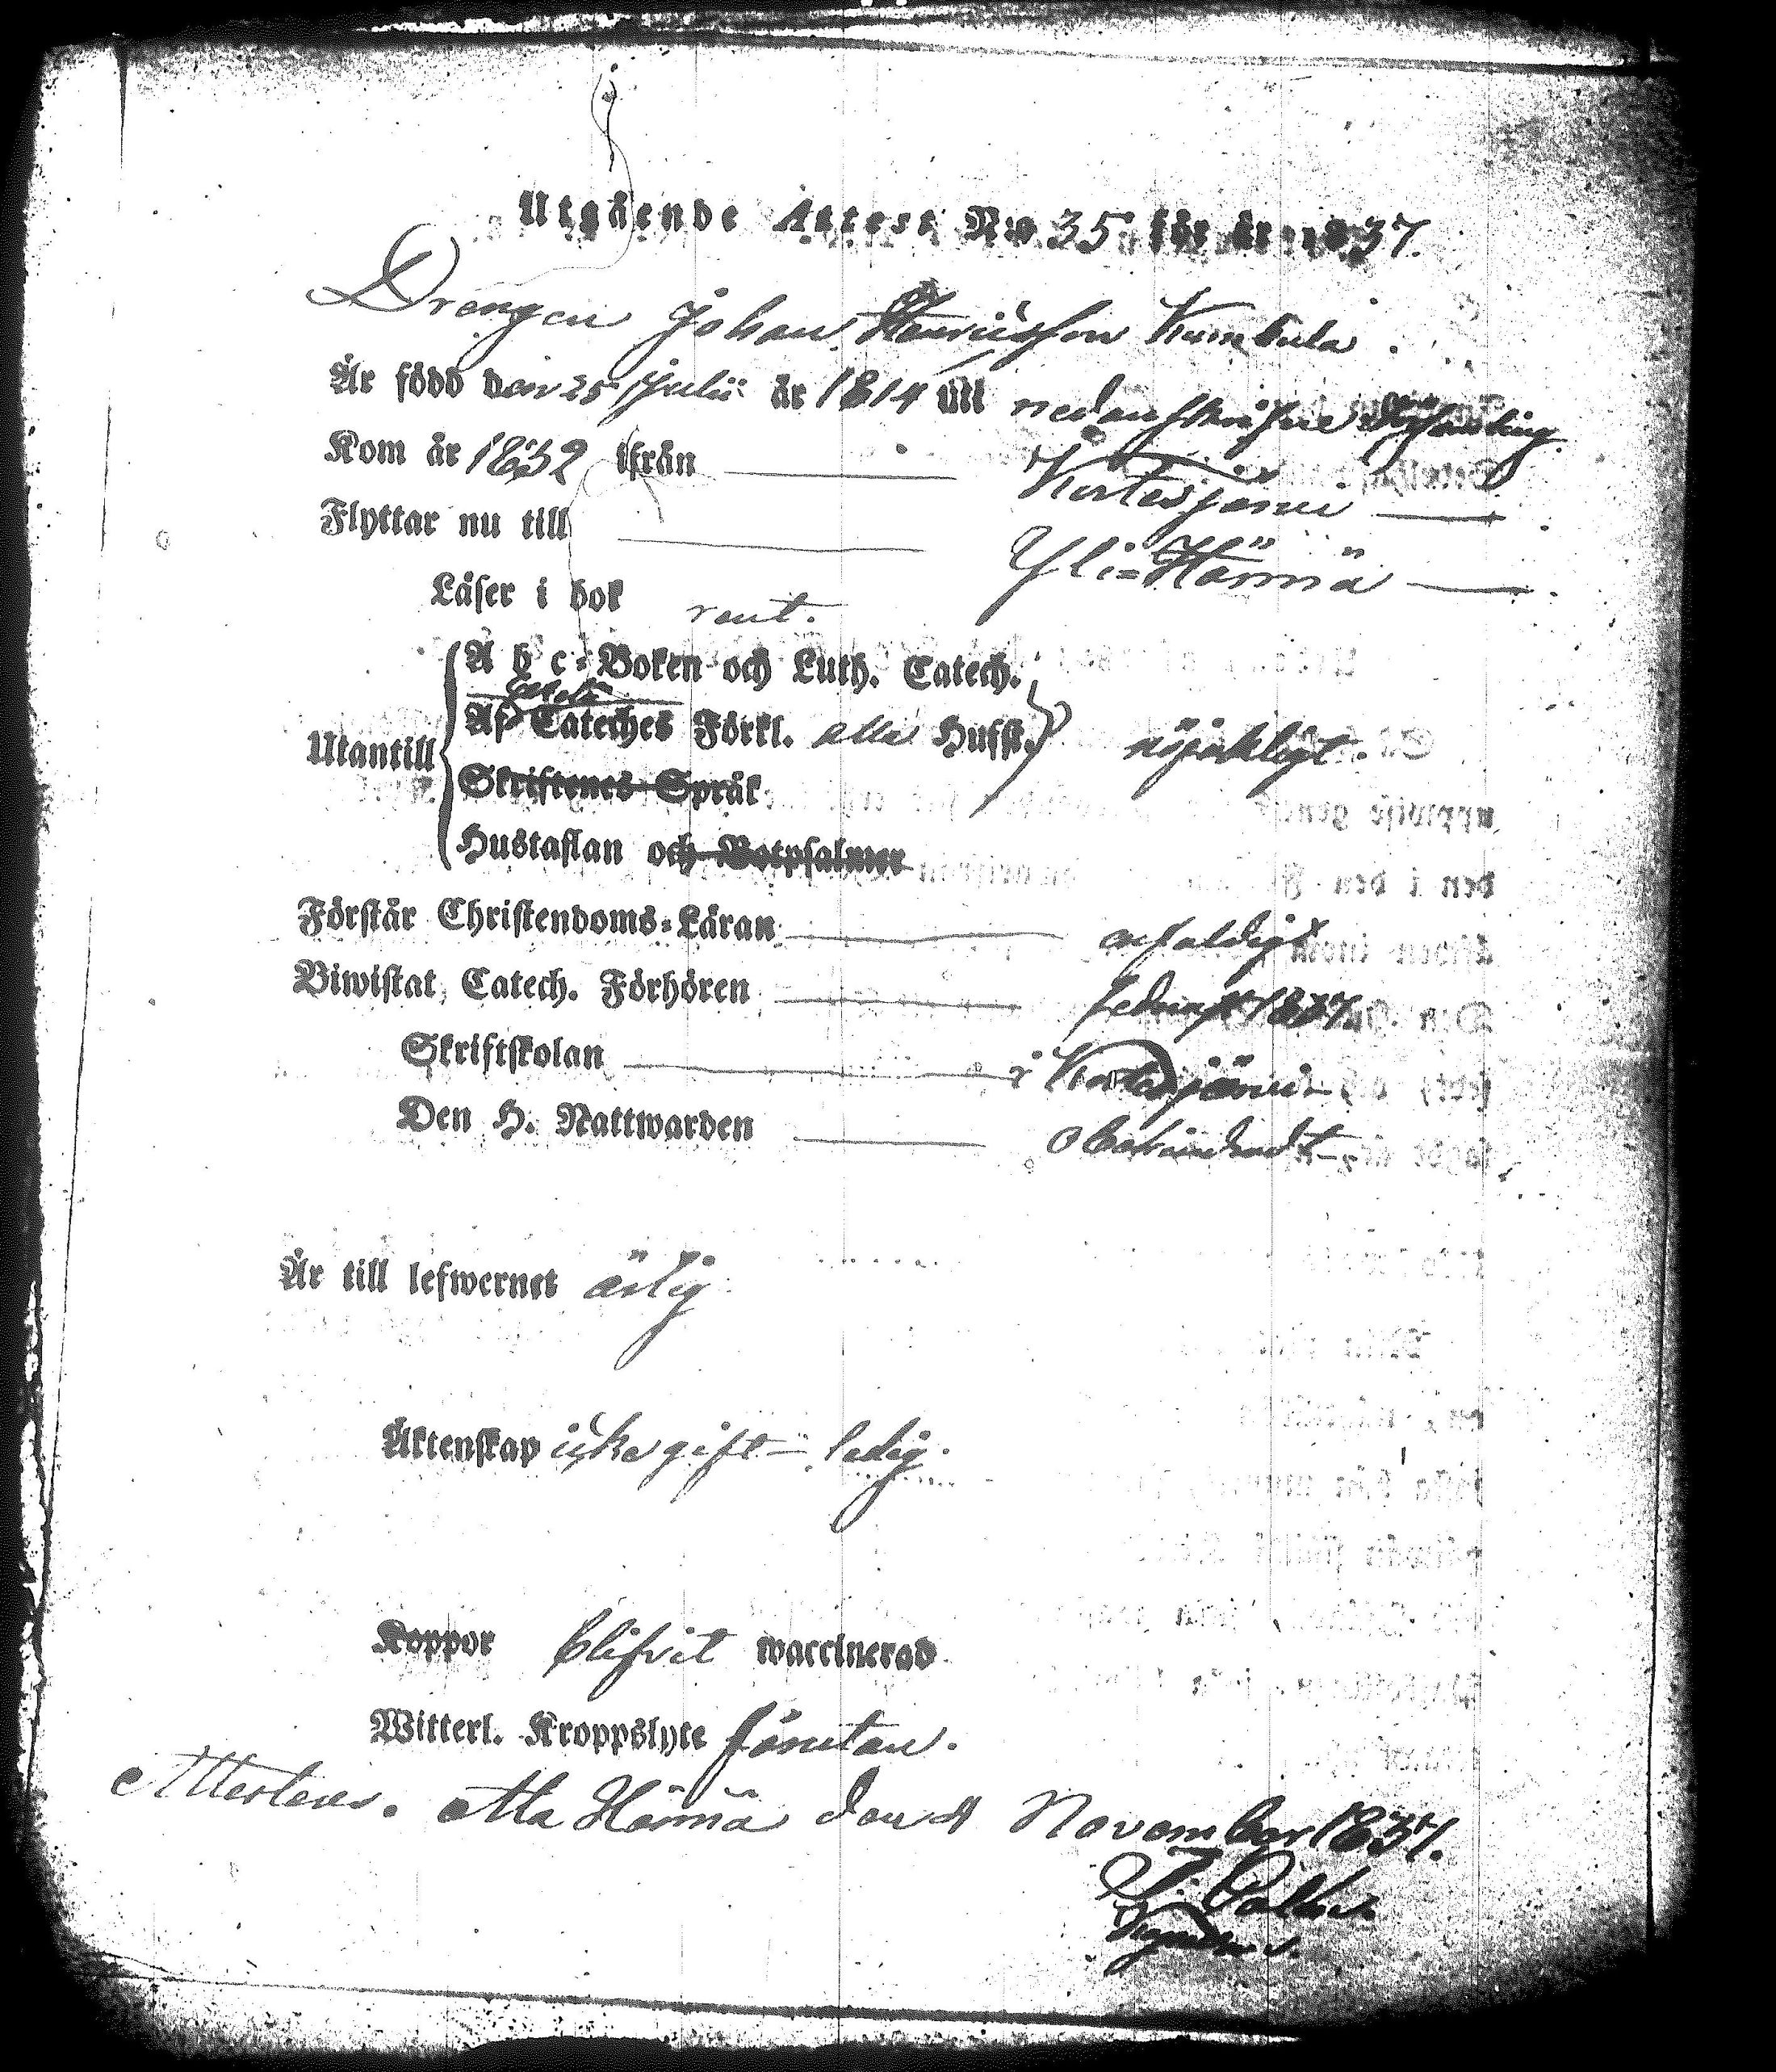 Utgående Attest No 35 för år 1837.
Drengen Johan Henricsson Kumbula.
Är född den 25 Julii år 1814 till nedanskrifne Församling
Kom år 1832 ifrån Kortesjärvi
Flyttar nu till Yli-Härmä
Läser i bok rent.
A b c-Boken och Luth. Catech.
Af Cateches Förkl. alla Hufst. nöjaktigt.
Utantill
Skriftenes Språk
Hustaflan och Botpsalmer
Förstår Christendoms-Läran enfaldigt
Biwistat Catech. Förhören sednast 1837.
Skriftskolan i Kortesjärvi
Den H. Nattwarden obehindradt
Är till lefwernet ärlig
Äktenskap icke gift – ledig.
Koppor blifvit waccinerad
Witterl. Kroppslyte förutan.
Attesteras. Ala Härmä den November 1837.